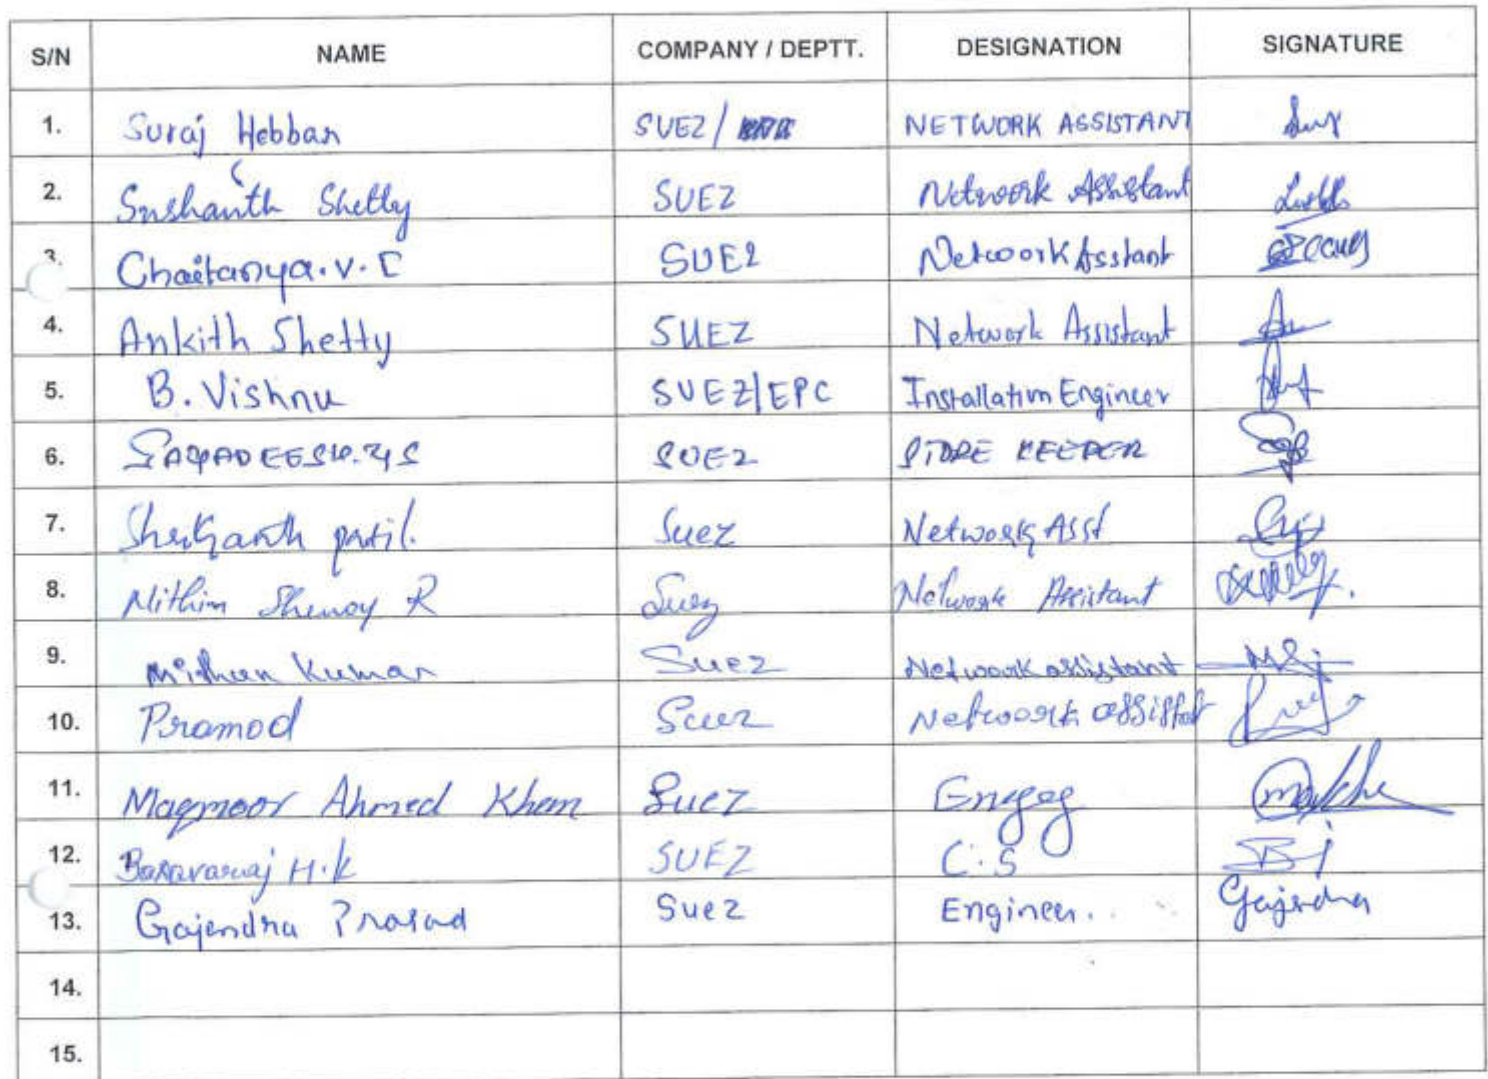 S/N NAME COMPANY / DEPTT. DESIGNATION SIGNATURE
1. Suraj Hebbar SUEZ/ NETWORK ASSISTANT
2. Sushanth Shetty SUEZ Network Assistant
3. Chaitanya.V. SUEZ Network Asstant
4. Ankith Shetty SUEZ Network Assistant
5. B. Vishnu SUEZ/EPC Installation Engineer
6. SUEZ STORE KEEPER
7. patil. Suez Network Asst
8. Nithin Shenoy R Suez Network Assistant
9. Mithun Kumar Suez Network assistant
10. Pramod Suez Network
11. Ahmed Khan Suez
12. Basavaraj H.K SUEZ C.S
13. Gajendra Prasad Suez Engineer. Gajendra
14.
15.